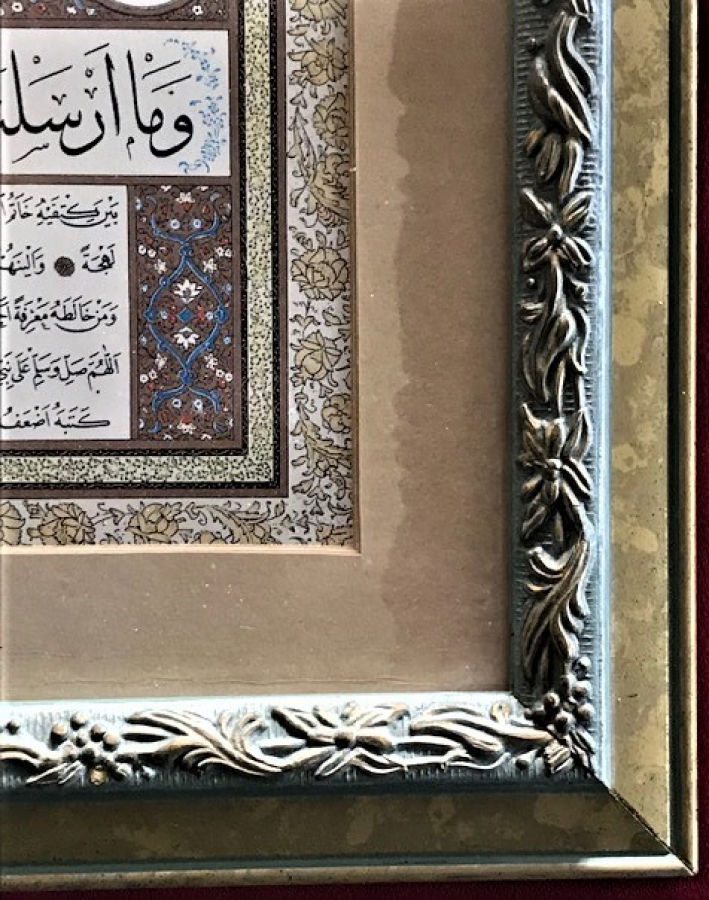 وَمَا اَرْسَلْنَا
بَيْنَ كَتِفَيْهِ خَاتَمُ
لَهْجَةً وَاَلْيَنَهُمْ
وَمَنْ خَالَطَهُ مَعْرِفَةً
اَللّٰهُمَّ صَلِّ وَسَلِّمْ عَلٰى
كَتَبَهُ اَضْعَفُ